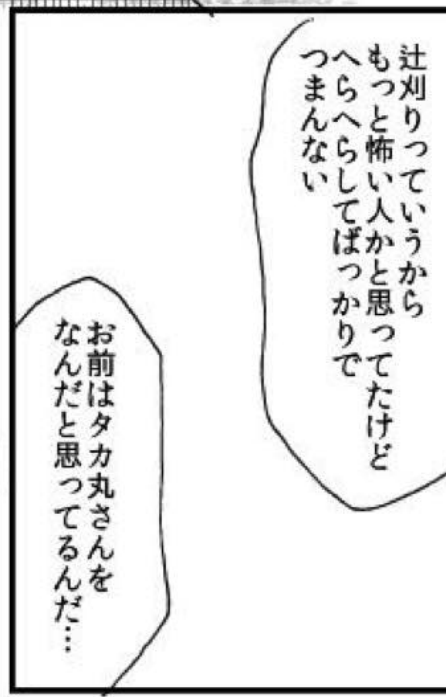 辻刈りっていうから
もっと怖い人かと思ってたけど
へらへらしてばっかりで
つまんない
お前はタカ丸さんを
なんだと思ってるんだ…